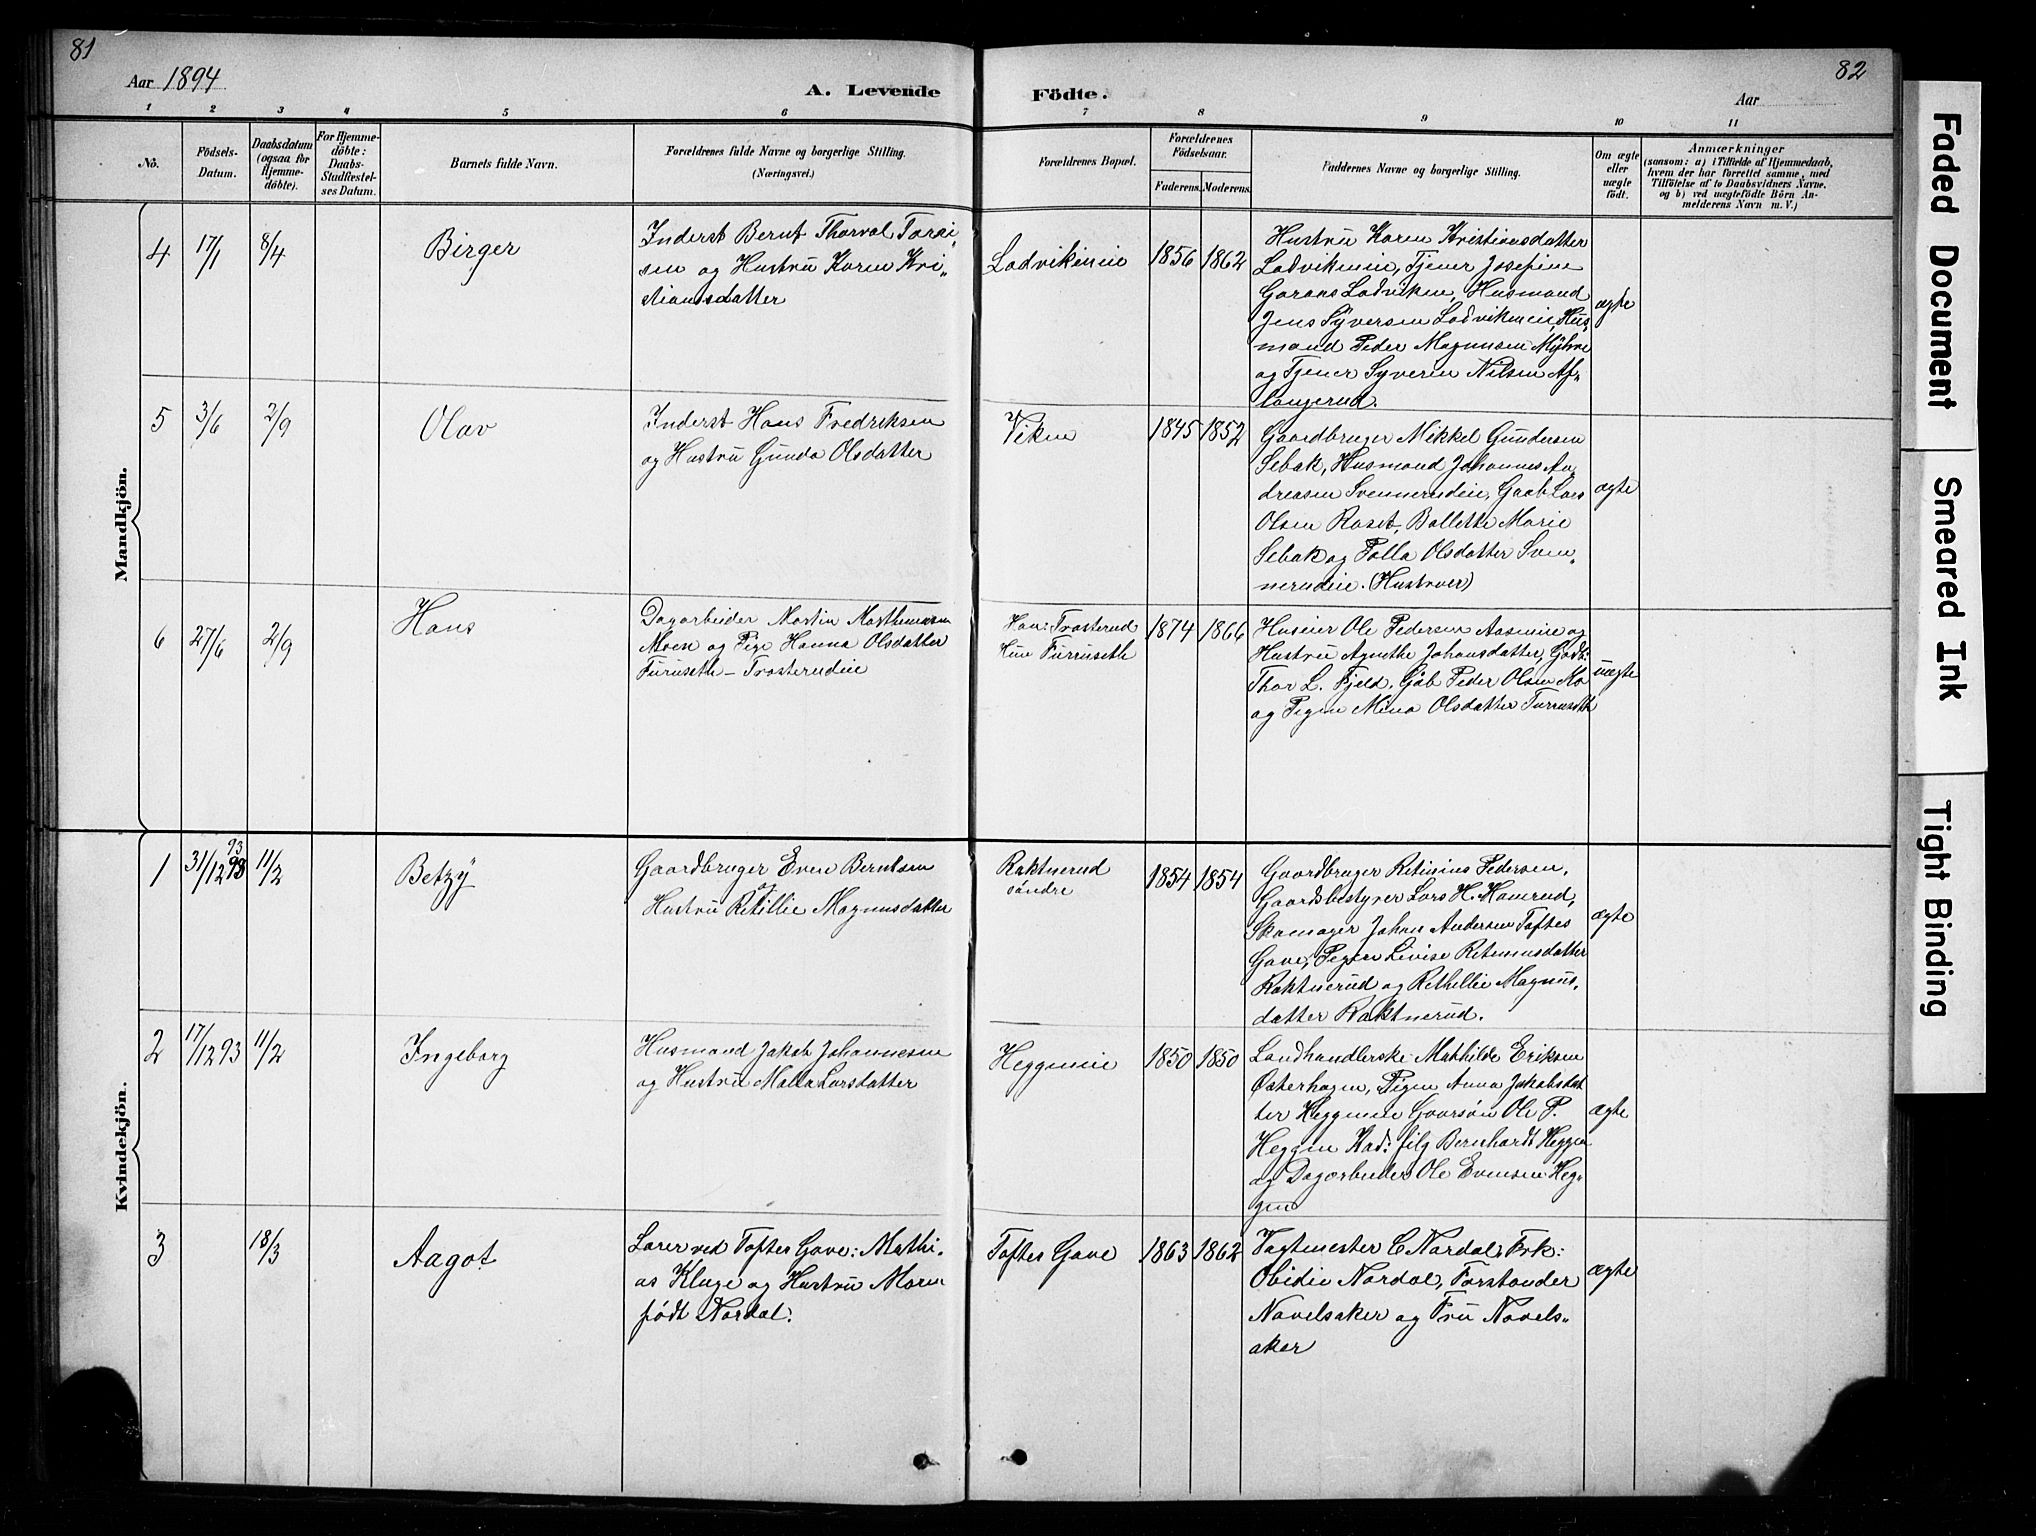 81
Aar 1894
A. Levende
Födte.
82
Aar
1 2 3 4 5 6 7 8 9 10 11
No.
Födsels-
Datum.
Daabsdatum
(ogsaa for
Hjemme-
döbte).
For Hjemme-
döbte:
Daabs-
Stadfæstel-
ses Datum.
Barnets fulde Navn.
Forældrenes fulde Navne og borgerlige Stilling.
(Næringsvei.)
Forældrenes Bopæl.
Forældrenes
Födselsaar.
Faderens. Moderens.
Faddernes Navne og borgerlige Stilling.
Om ægte
eller
uægte
födt.
Anmærkninger
(saasom: a) i Tilfælde af Hjemmedaab,
hvem der har forrettet samme, med
Tilföielse af to Daabsvidners Navne,
og b) ved uægtefödte Börn An-
melderens Navn m. V.)
Mandkjön.
4
17/1
8/4
Birger
Inderst Bernt Thorval Torri-
sen og Hustru Karen Kri-
stiansdatter
Ladvikeneie
1856
1862
Hustru Karen Kristiansdatter
Ladvikeneie, Tjener Josefine
Garaas Ladviken, Husmand
Jens Syversen Ladvikeneie, Hus-
mand Peder Magnusen Myhre
og Tjener Syverin Nilsen Af-
langerud.
ægte
5
3/6
2/9
Olav
Inderst Hans Fredriksen
og Hustru Gunda Olsdatter
Viken
1845
1852
Gaardbruger Mikkel Gundersen
Sebak, Husmand Johannes An-
dreasen Svennerudeie, Gaab Lars
Olsen Raset, Ballette Marie
Sebak og Palla Olsdatter Sven-
nerudeie. (Hustruer)
ægte
6
27/6
2/9
Hans
Dagarbeider Martin Mathenussen
Moen og Pige Hanna Olsdatter
Furuseth - Trosterudeie
Han: Trosterud
Hun Furruseth
1874
1866
Huseier Ole Pedersen Aasneie og
Hustru Agnethe Johansdatter, Gaab:
Thor L. Fjeld, Gåb Peder Olsen Mo
og Pigen Mina Olsdatter Furruseth
uægte
Kvindekjön.
1
31/12 93
11/2
Betzy
Gaardbruger Even Berntsen
og
Hustru Retillie Magnusdatter
Raknerud
söndre
1854
1854
Gaardbruger Retinius Pedersen,
Gaardsbestyrer Lars H. Hamrud,
Skomager Johan Andersen Toftes
Gave, Pigen Lovise Retinusdatter
Raktnerud og Rethillie Magnus-
datter Raktnerud.
ægte
2
17/12 93
11/2
Ingeborg
Husmand Jakob Johannesen
og Hustru Malla Larsdatter
Heggeneie
1850
1850
Landhandlerske Mathilde Eriksen
Østerhagen, Pigen Anna Jakobsdat
ter Heggeneie Gaarsön Ole P.
Heggen Kad: filg Bernhardt Heggen
og Dagarbeider Ole Evensen Heg-
gen
ægte
3
18/3
Aagot
Lærer ved Toftes Gave: Mathi-
as Kluge og Hustru Maren
født Nordal.
Toftes Gave
1863
1862
Vagtmester C Nordal, Frk:
Obidie Nordal, Forstander
Navelsaker og Fru Navels-
aker
ægte
Faded Document
Smeared Ink
Tight Binding